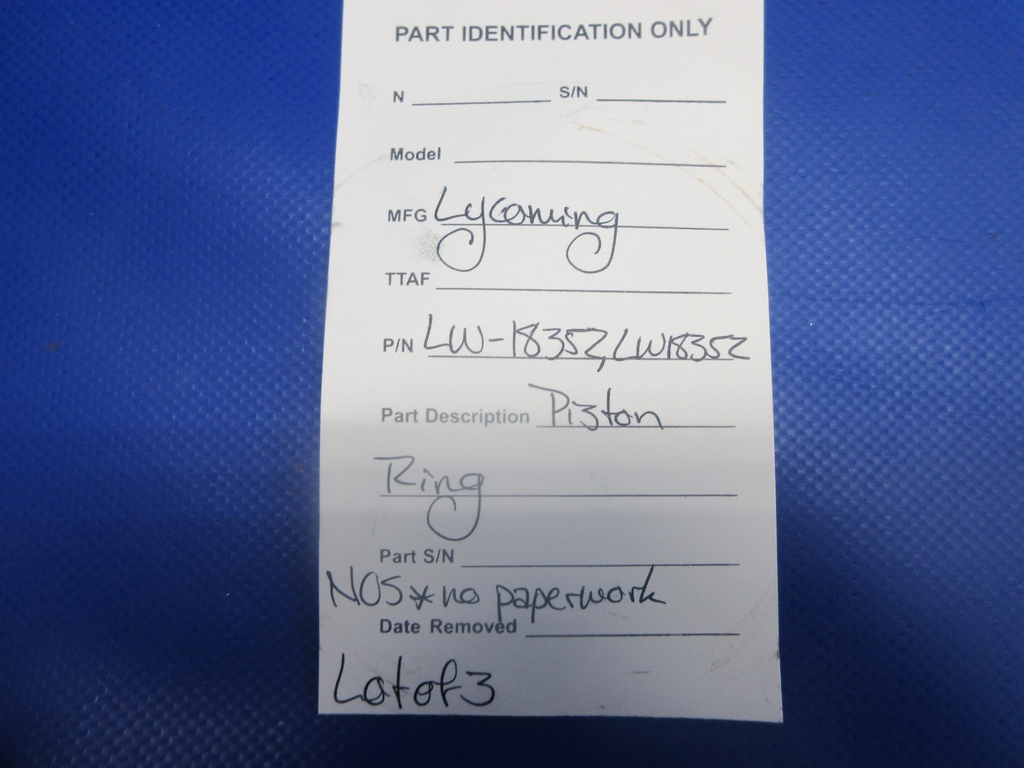 PART IDENTIFICATION ONLY
N S/N
Model
MFG Lycoming
TTAF
P/N LW-18352, LW18352
Part Description Piston
Ring
Part S/N
NOS * no paperwork
Date Removed
Lot of 3